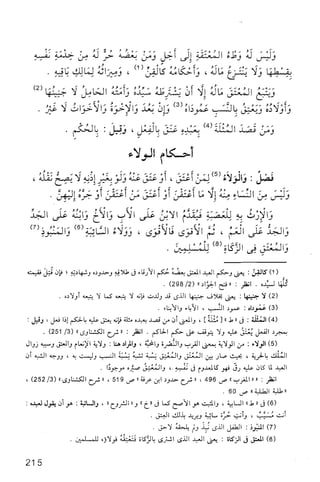 وَلَيْسَ لَهُ وَطْءُ المُعْتَقَةِ إِلَى أَجَلٍ وَمَنْ بَعْضُهُ حُرٌّ لَهُ مِنْ خِدْمَةِ نَفْسِهِ
بِقِسْطِهَا وَلَا يَنْتَزِعُ مَالَهُ ، وَأَحْكَامُهُ كَالْقِنِّ (1) ، وَمِيرَاثُهُ لِمَالِكِ بَاقِيهِ .
وَيَتْبَعُ المُعْتَقَ مَالُهُ إِلَّا أَنْ يَشْتَرِطَهُ سَيِّدُهُ وَأَمَتُهُ الحَامِلُ لَا جَنِينُهَا (2)
وَأَوْلَادُهُ وَيَعْتِقُ بِالنَّسَبِ عَمُودَاهُ (3) وَإِنْ بَعُدَ وَالإِخْوَةُ وَالأَخَوَاتُ لَا غَيْرُ .
وَمَنْ قَصَدَ المُثْلَةَ (4) بِعَبْدِهِ عَتَقَ بِالْفِعْلِ ، وَقِيلَ : بِالْحُكْمِ .
أحكام الولاء
فَصْلٌ : وَالْوَلَاءُ (5) لِمَنْ أَعْتَقَ ، أَوْ عَتَقَ عَنْهُ وَلَوْ بِغَيْرِ إِذْنِهِ لَا يَصِحُّ نَقْلُهُ ،
وَلَيْسَ مِنَ النِّسَاءِ مِنْهُ إِلَّا مَا أَعْتَقْنَ أَوْ أَعْتَقَ مَنْ أَعْتَقْنَ أَوْ جَرَّهُ إِلَيْهِنَّ .
وَالإِرْثُ بِهِ لِلْعَصَبَةِ فَيُقَدَّمُ الابْنُ عَلَى الأَبِ وَالأَخُ وَابْنُهُ عَلَى الجَدِّ
وَالجَدُّ عَلَى العَمِّ ، ثُمَّ الأَقْوَى فَالأَقْوَى ، وَوَلَاءُ السَّائِبَةِ (6) وَالمَنْبُوذِ (7)
وَالمُعْتَقِ فِي الزَّكَاةِ (8) لِلْمُسْلِمِينَ .
(1) كالقن : يعني وحكم العبد المعتق بعضه حكم الأرقاء في طلاقه وحدوده وشهادته ؛ فإن قُتل فقيمته
كُلُّها لسيده . انظر : « فتح الجواد » (2/ 298) .
(2) لا جنينها : يعني بخلاف جنينها الذي قد ولدت فإنه لا يتبعه كما لا يتبعه أولاده .
(3) عموداه : عمود النسب ، الآباء والأبناء .
(4) المثلة : في « ط » [ مُثْلَةً ] ، والمعنى أن من قصد بعبده مثلة فإنه يعتق عليه بالحكم إذا فعل ، وقيل :
بمجرد الفعل يُعْتَقُ عليه ولا يتوقف على حكم الحاكم . انظر : « شرح الكشناوي » (3/ 251) .
(5) الولاء : من الولاية بمعنى القرب والنُّصرة والمحبَّة ، والمراد هنا : ولاية الإنعام والعتق وسببه زوال
المُلك بالحرية ، بحيث صار بين المُعْتِق والمُعْتَق بِهِ نسبة تشبه نسبة النسب وليست به ، ووجه الشبه أن
العبد لما كان عليه رقٌّ فهو كالمعدوم في نفسه ، والمعتق صيَّره موجودًا .
انظر : « المغرب » ص 496 ، « شرح حدود ابن عرفة » ص 519 ، « شرح الكشناوي » (3/ 252) ،
« طلبة الطلبة » ص 60 .
(6) في « ط » السايبة ، والمثبت هو الأصح كما في « خ » و « الشروح » ، والسائبة : هو أن يقول لعبده :
أنت مُسَيَّب ، وأنت حُرٌّ سائبة ويريد بذلك العتق .
(7) المنبوذ : الطفل الذي نُبِذَ ولم يلحقه لاحق .
(8) المعتق في الزكاة : يعني العبد الذي اشتري بالزكاة فعتقه فولاؤه للمسلمين .
215